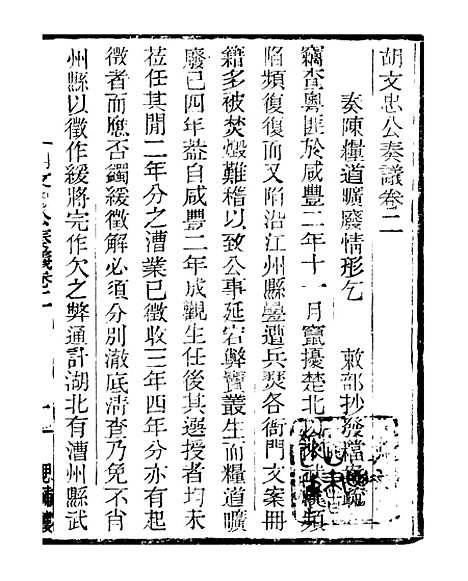 胡文忠公奏議卷二
奏陳糧道曠廢情形乞 敕部抄發檔疏
竊查粵匪於咸豐二年十一月竄擾楚北頻
陷頻復復而又陷沿江州縣疊遭兵燹各衙門文案冊
籍多被焚燬難稽以致公事延宕弊竇叢生而糧道曠
廢已四年益自咸豐二年成觀生任後其遞授者均未
莅任其閒二年分之漕業已徵收三年四年分亦有起
徵者而應否蠲緩徵解必須分別澈底清查乃免不肖
州縣以徵作緩將完作欠之弊通計湖北有漕州縣武
胡文忠公奏議卷二
一
思補樓